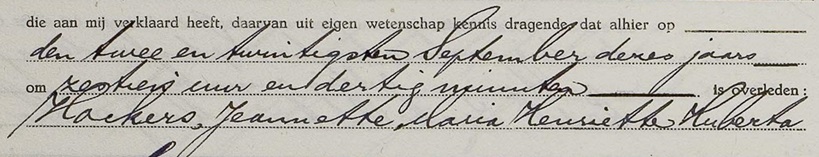 die aan mij verklaard heeft, daarvan uit eigen wetenschap kennis dragende, dat alhier op
den twee en twintigsten September dezes jaars
om zestien uur en dertig minuten is overleden:
Hackers, Jeannette Maria Henriette Huberta